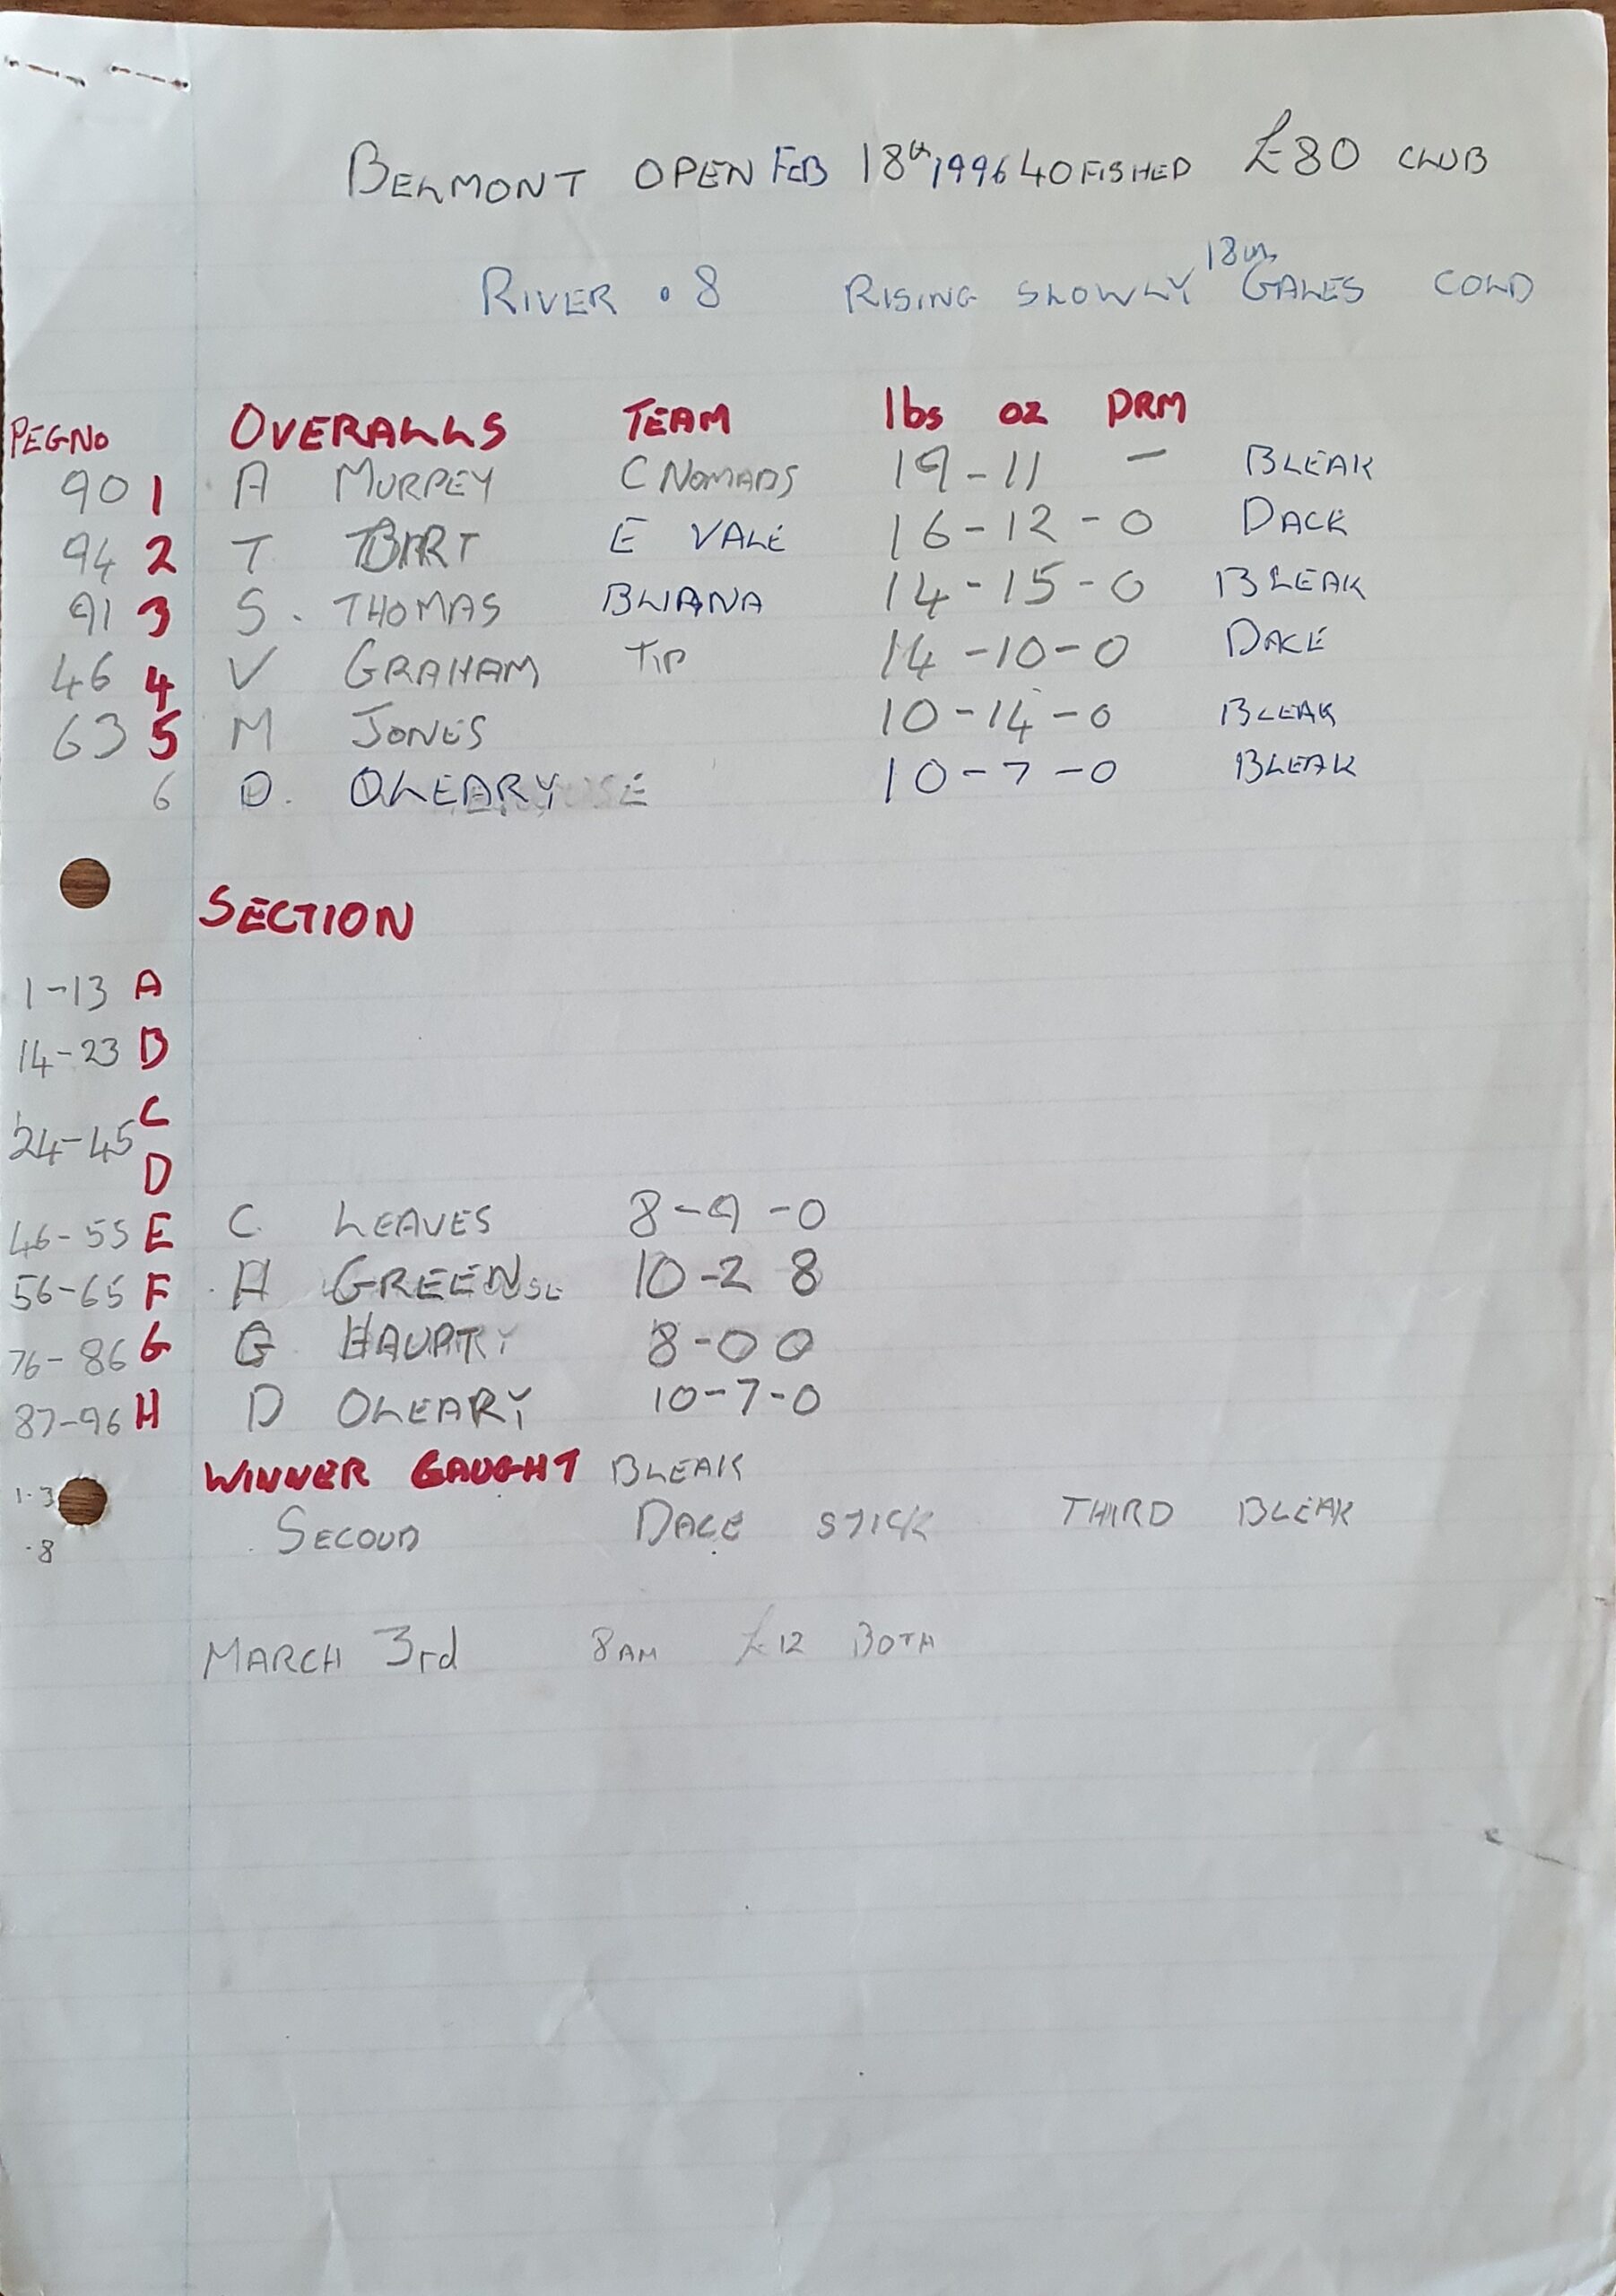 BELMONT OPEN FEB 18th 1996 40 FISHED £80 CLUB
RIVER .8 RISING SLOWLY 18in GALES COLD
PEG NO OVERALLS TEAM lbs oz DRM
90 1 A MURPEY C NOMADS 19-11 - BLEAK
94 2 T BIRT E VALE 16-12-0 DACE
91 3 S. THOMAS BLIANA 14-15-0 BLEAK
46 4 V GRAHAM TIP 14-10-0 DACE
63 5 M JONES 10-14-0 BLEAK
6 D. OLEARY 10-7-0 BLEAK
SECTION
1-13 A
14-23 B
24-45 C
D
46-55 E C LEAVES 8-9-0
56-65 F A GREEN 10-2 8
76-86 G G 8-0 0
87-96 H D OLEARY 10-7-0
WINNER CAUGHT BLEAK
1.3
SECOUD DACE STICK THIRD BLEAK
.8
MARCH 3rd 8AM £12 BOTH